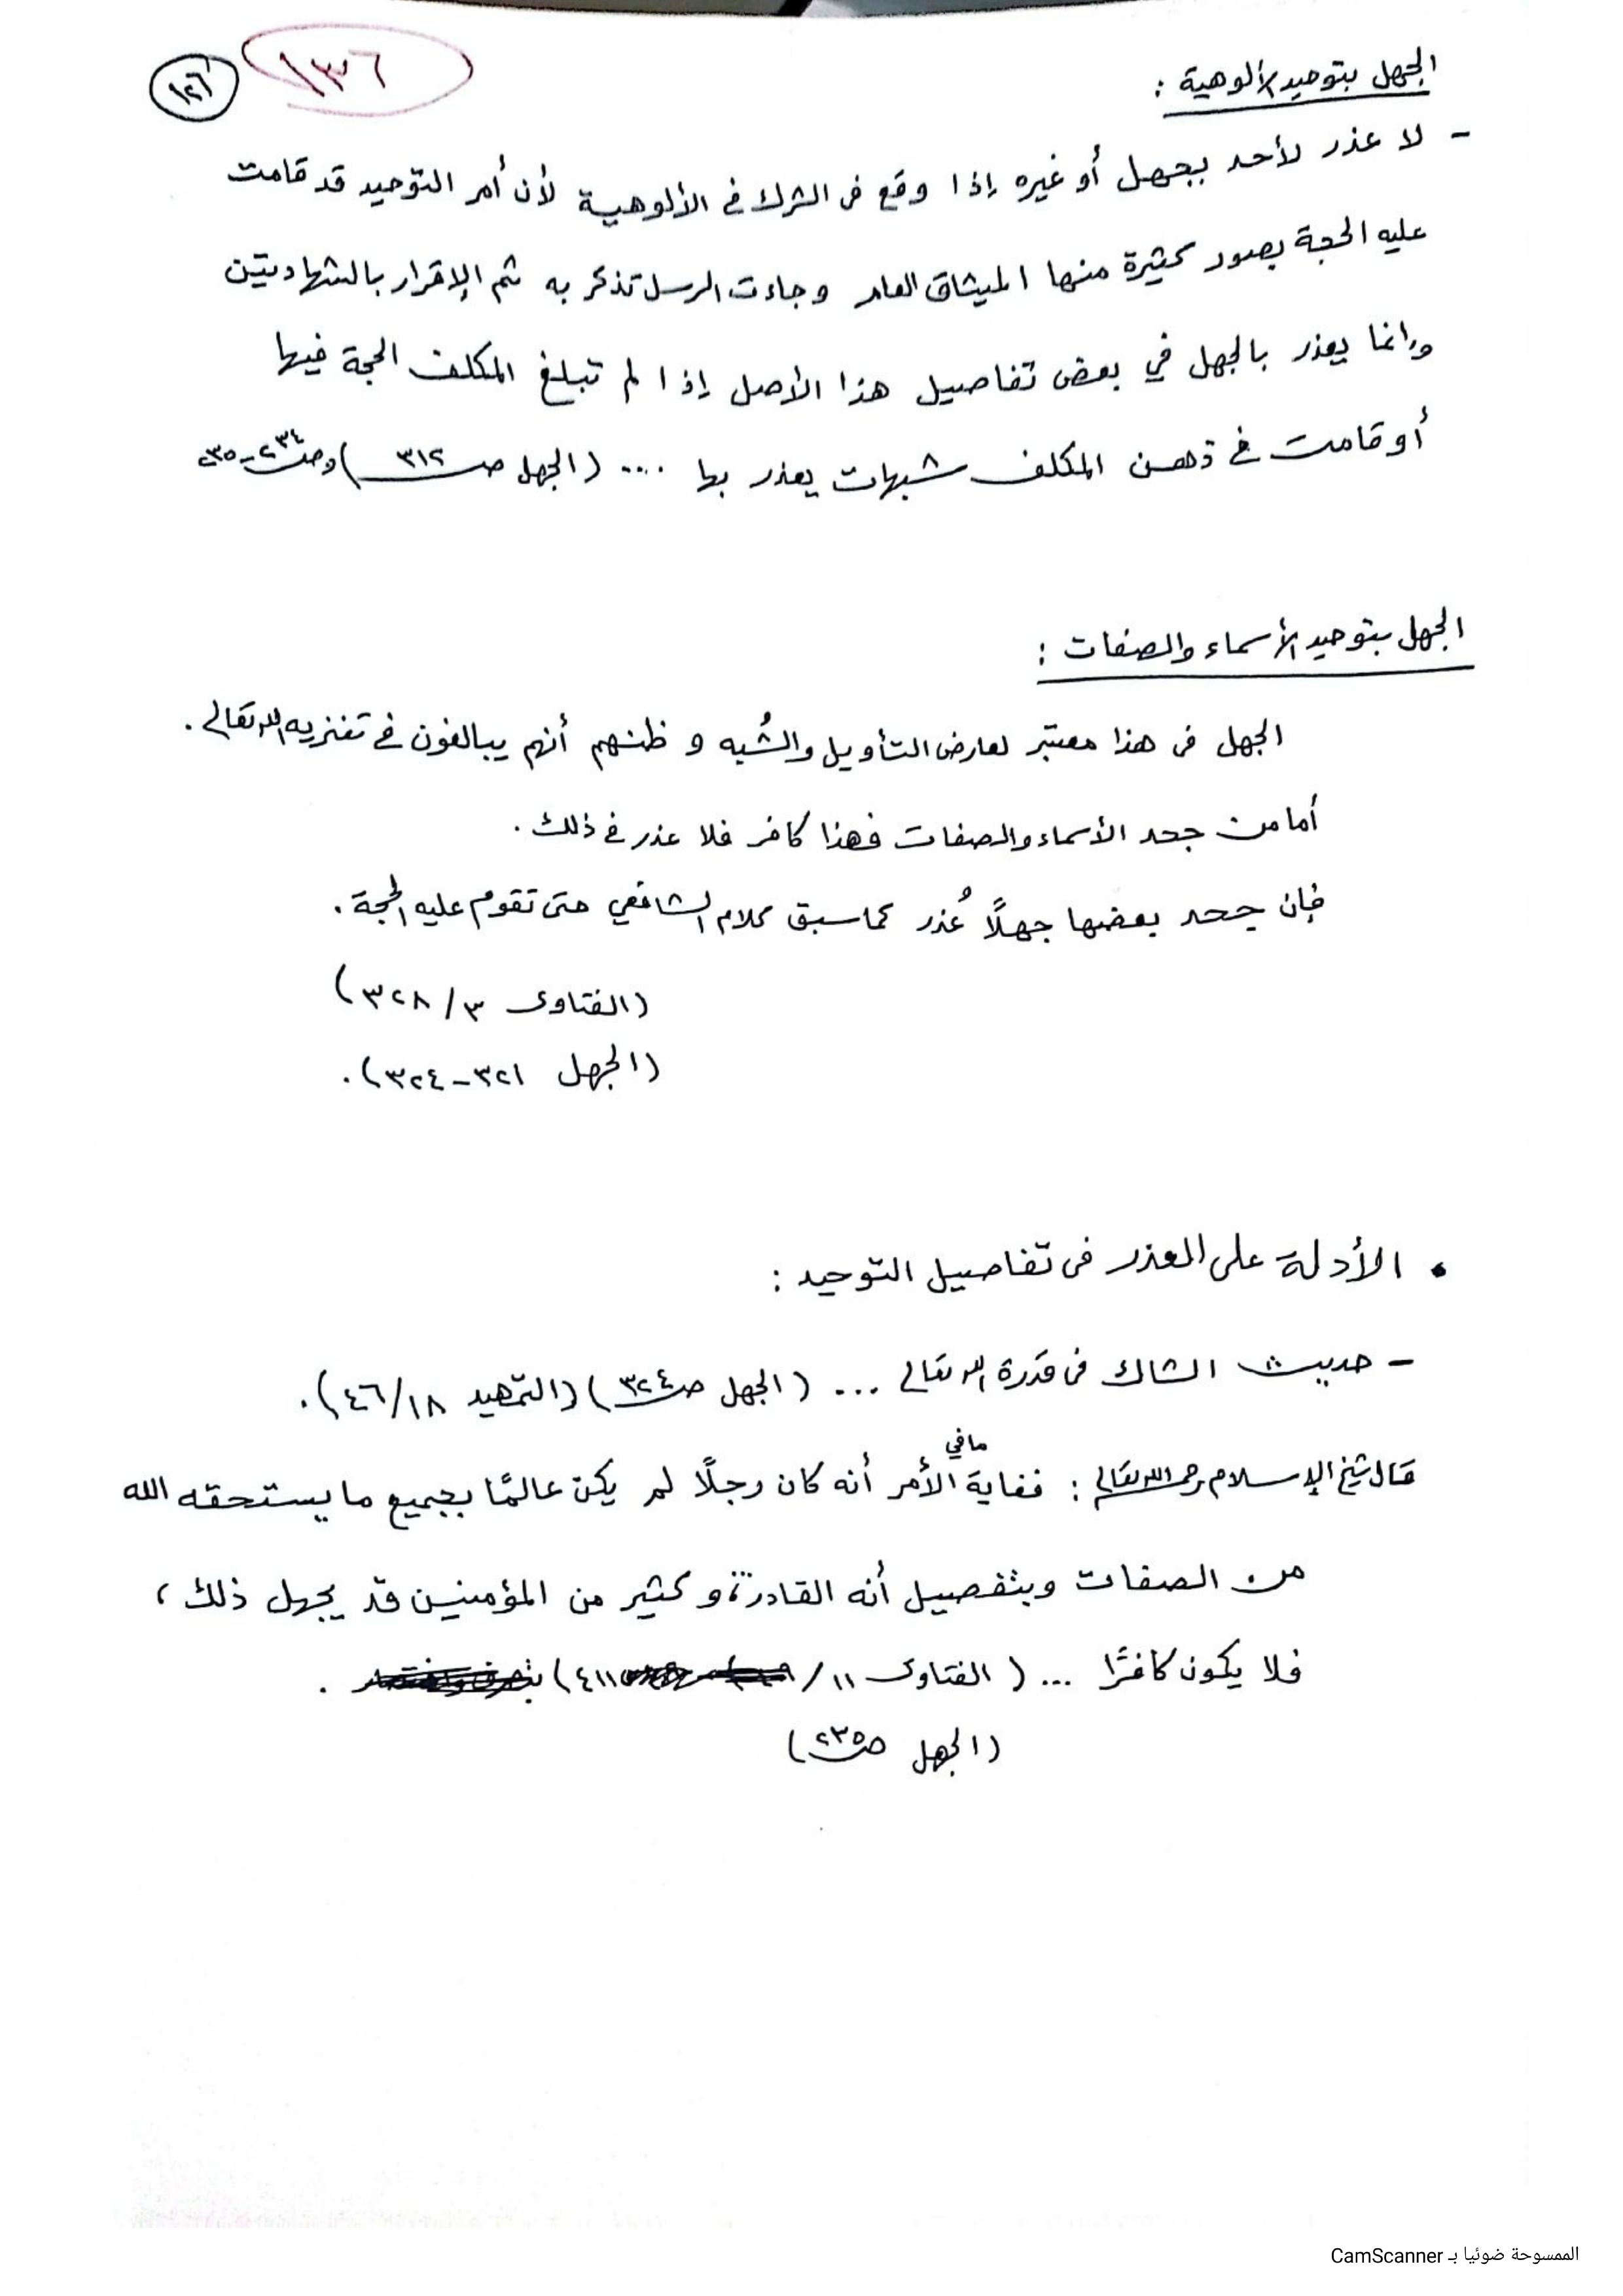 ١٣٦
١٢٦
الجهل بتوحيد الألوهية :
- لا عذر لأحد بجهل أو غيره إذا وقع فى الشرك في الألوهية لأن أمر التوحيد قد قامت
عليه الحجة بصور كثيرة منها الميثاق العام وجاءت الرسل تذكر به ثم الإقرار بالشهادتين
وإنما يعذر بالجهل في بعض تفاصيل هذا الأصل إذا لم تبلغ المكلف الحجة فيها
أو قامت في ذهن المكلف شبهات يعذر بها .... (الجهل صـ ٣١٢) وصـ ٢٣٤-٢٣٥
الجهل بتوحيد الأسماء والصفات :
الجهل فى هذا معتبر لعارض التأويل والشُبه و ظنهم أنهم يبالغون في تنزيه الله تعالى .
أما من جحد الأسماء والصفات فهذا كافر فلا عذر في ذلك .
فإن جحد بعضها جهلًا عُذر كما سبق كلام الشافعي حتى تقوم عليه الحجة .
(الفتاوى ٣ / ٣٢٨)
(الجهل ٣٢١-٣٢٤) .
• الأدلة على العذر فى تفاصيل التوحيد :
- حديث الشاك فى قدرة الله تعالى ... (الجهل صـ ٣٢٤) (التمهيد ١٨/ ٤٦) .
قال شيخ الإسلام رحمه الله تعالى : فغاية ما في الأمر أنه كان رجلًا لم يكن عالمًا بجميع ما يستحقه الله
من الصفات وبتفصيل أنه القادر ، و كثير من المؤمنين قد يجهل ذلك ،
فلا يكون كافرًا ... (الفتاوى ١١ / ٤١١) .
(الجهل صـ ٢٣٥)
الممسوحة ضوئيا بـ CamScanner